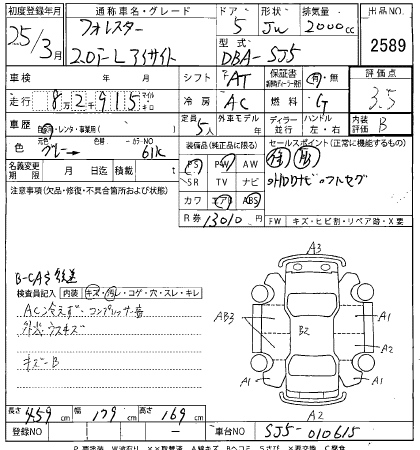 初度登録年月 通称車名・グレード ドア 形状 排気量 出品NO
25/3月 フォレスター 5 Jw 2000cc
2.0i-L アイサイト 型式 DBA-SJ5 2589
車検 年 月 シフト AT 保証書 有・無 評価点
走行 8万2千915 マイル キロ 冷房 AC 燃料 G 3.5
車歴 自家用・レンタ・事業用( ) 定員 5人 外車モデル 年 ディーラー 並行 ハンドル 左・右 内装評価 B
色 元色 グレー→ 色替 カラーNO 61K
装備品(純正品に限る) セールスポイント(正常に機能するもの)
名義変更期限 月 日迄 積載 t
PS PW AW
注意事項(欠品・修復・不具合箇所および状態)
SR TV ナビ
外ナビ フルセグ
カワ エアB ABS
R券 13010円 FW キズ・ヒビ割・リペア跡・X要
検査員記入 内装 キズ・汚レ・コゲ・穴・スレ・キレ
AC冷えず・コンプレッサー音
外装ウスキズ
キズ-B
A3
AB3
B2
A1
A1
A1
A2
長さ 459cm 幅 179cm 高さ 169cm
登録NO 車台NO SJ5-010615